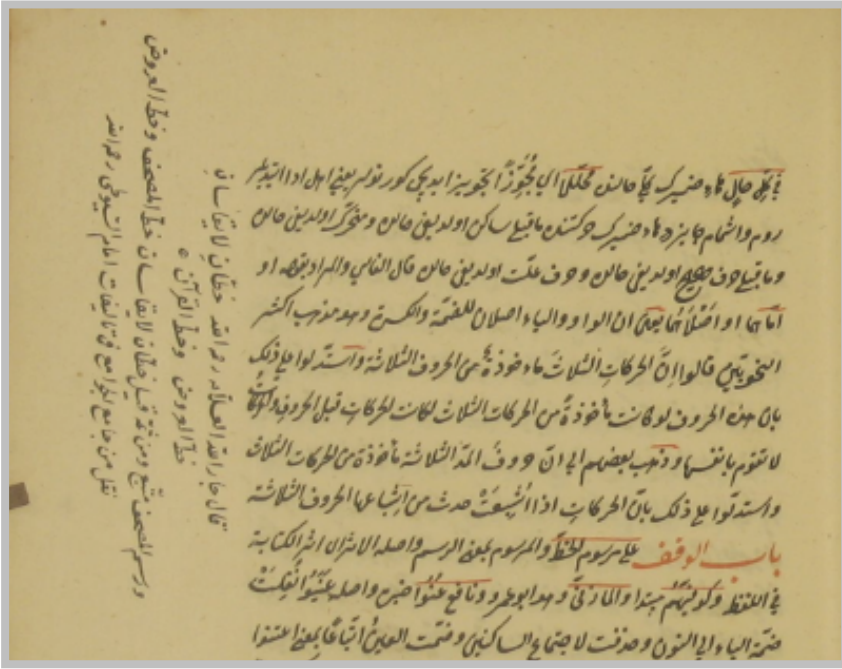 في كل حال هاء ضميرك كل حالنده محللا اي مجوزا تجويز ايديجى كورنلر يعني اهل ادا ابتديلر
روم واشمام جايزدر هاء ضميرك حركتنده ماقبلى ساكن اولديغى حالده ومتحرك اولديغى حالده
وماقبلى حرف صحيح اولديغى حالده وحرف علت اولديغى حالده قال الفاسي والمراد بقوله او
اماهما او اصلاهما يعنى ان الواو والياء اصلان للضمة والكسرة وهو مذهب اكثر
النحويين قالوا ان الحركات الثلاث ماءخوذة من الحروف الثلاثة واستدلوا على ذلك
بان هذه الحروف لو كانت مأخوذة من الحركات الثلاث لكانت الحركات قبل الحروف والحركات
لا تقوم بانفسها وذهب بعضهم الى ان حروف المد الثلاثة مأخوذة من الحركات الثلاث
واستدلوا على ذلك بان الحركات اذا اشبعت حدث من اشباعها الحروف الثلاثة
باب الوقف على مرسوم الخط والمرسوم بمعنى الرسم واصله الاثر ان اثر الكتابة
في اللفظ وكوفيهم مبتدا والمازني وهو ابو عمرو ونافع عنوا خبره واصله عنيوا نقلت
ضمة الياء الى النون وحذفت لاجتماع الساكنين وضمت العين اتباعا بمعنى اعتنوا
قال جار الله العلامه رحمه الله خطان لا يقاسان
خط العروض وخط القرآن
ورسم المصحف متبع ومن ثمة قيل خطان لا يقاسان خط المصحف وخط العروض
نقل من جامع الجوامع في تاليفات امام السيوطى رحمه الله